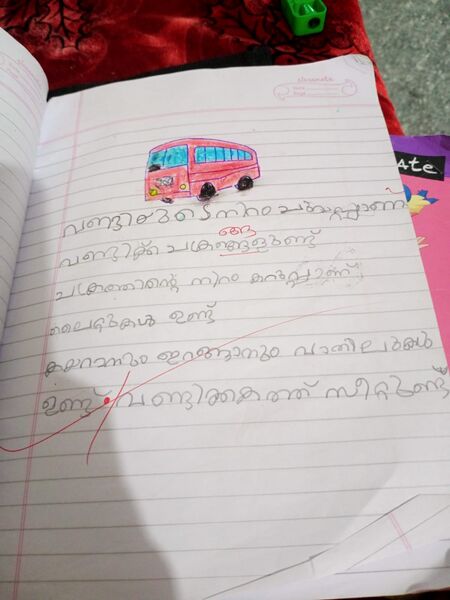 classmate
Date
Page
ate
വണ്ടിയുടെ നിറം ചുവപ്പാണ്
ങ്ങ
വണ്ടിക്ക് ചക്രങ്ങളുണ്ട്
ചക്രത്തിന്റെ നിറം കറുപ്പാണ്
ലൈറ്റുകൾ ഉണ്ട്
കയറാനും ഇറങ്ങാനും വാതിലുകൾ
ഉണ്ട് വണ്ടിക്കകത്ത് സീറ്റുണ്ട്